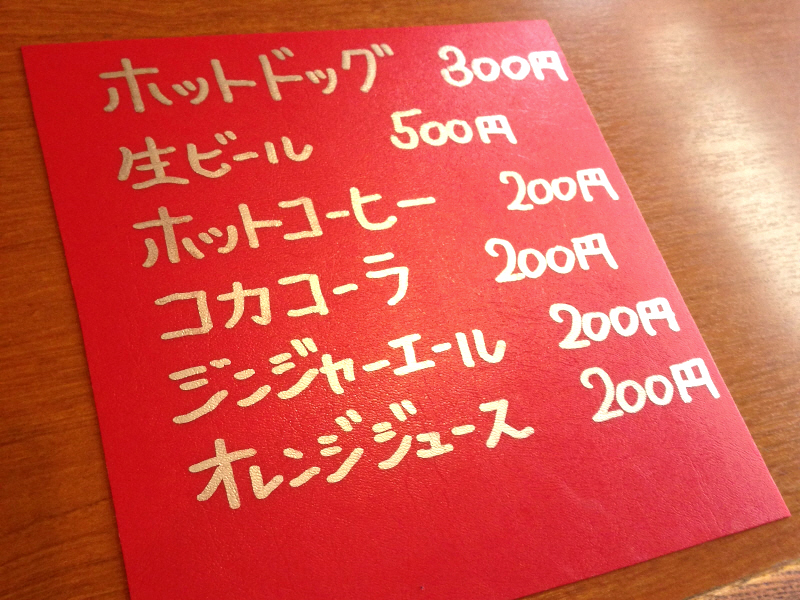 ホットドッグ 300円
生ビール 500円
ホットコーヒー 200円
コカコーラ 200円
ジンジャーエール 200円
オレンジジュース 200円